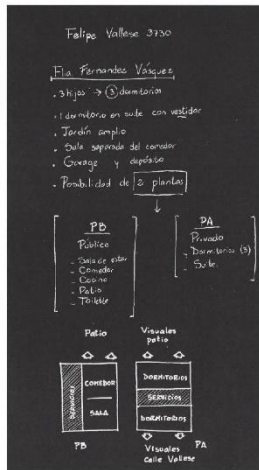 Felipe Vallese 3730
Fla Fernandez Vásquez
. 3 hijos → ③ dormitorios
. 1 dormitorio en suite con vestidor
. Jardín amplio
. Sala separada del comedor
. Garage y depósito
. Posibilidad de 2 plantas
PB
Público
- Sala de estar
- Comedor
- Cocina
- Patio
- Toilette
PA
Privado
- Dormitorios (3)
- Suite.
Patio
SERVICIOS
COMEDOR
SALA
PB
Visuales
patio
DORMITORIOS
SERVICIOS
DORMITORIOS
Visuales
calle Vallese
PA